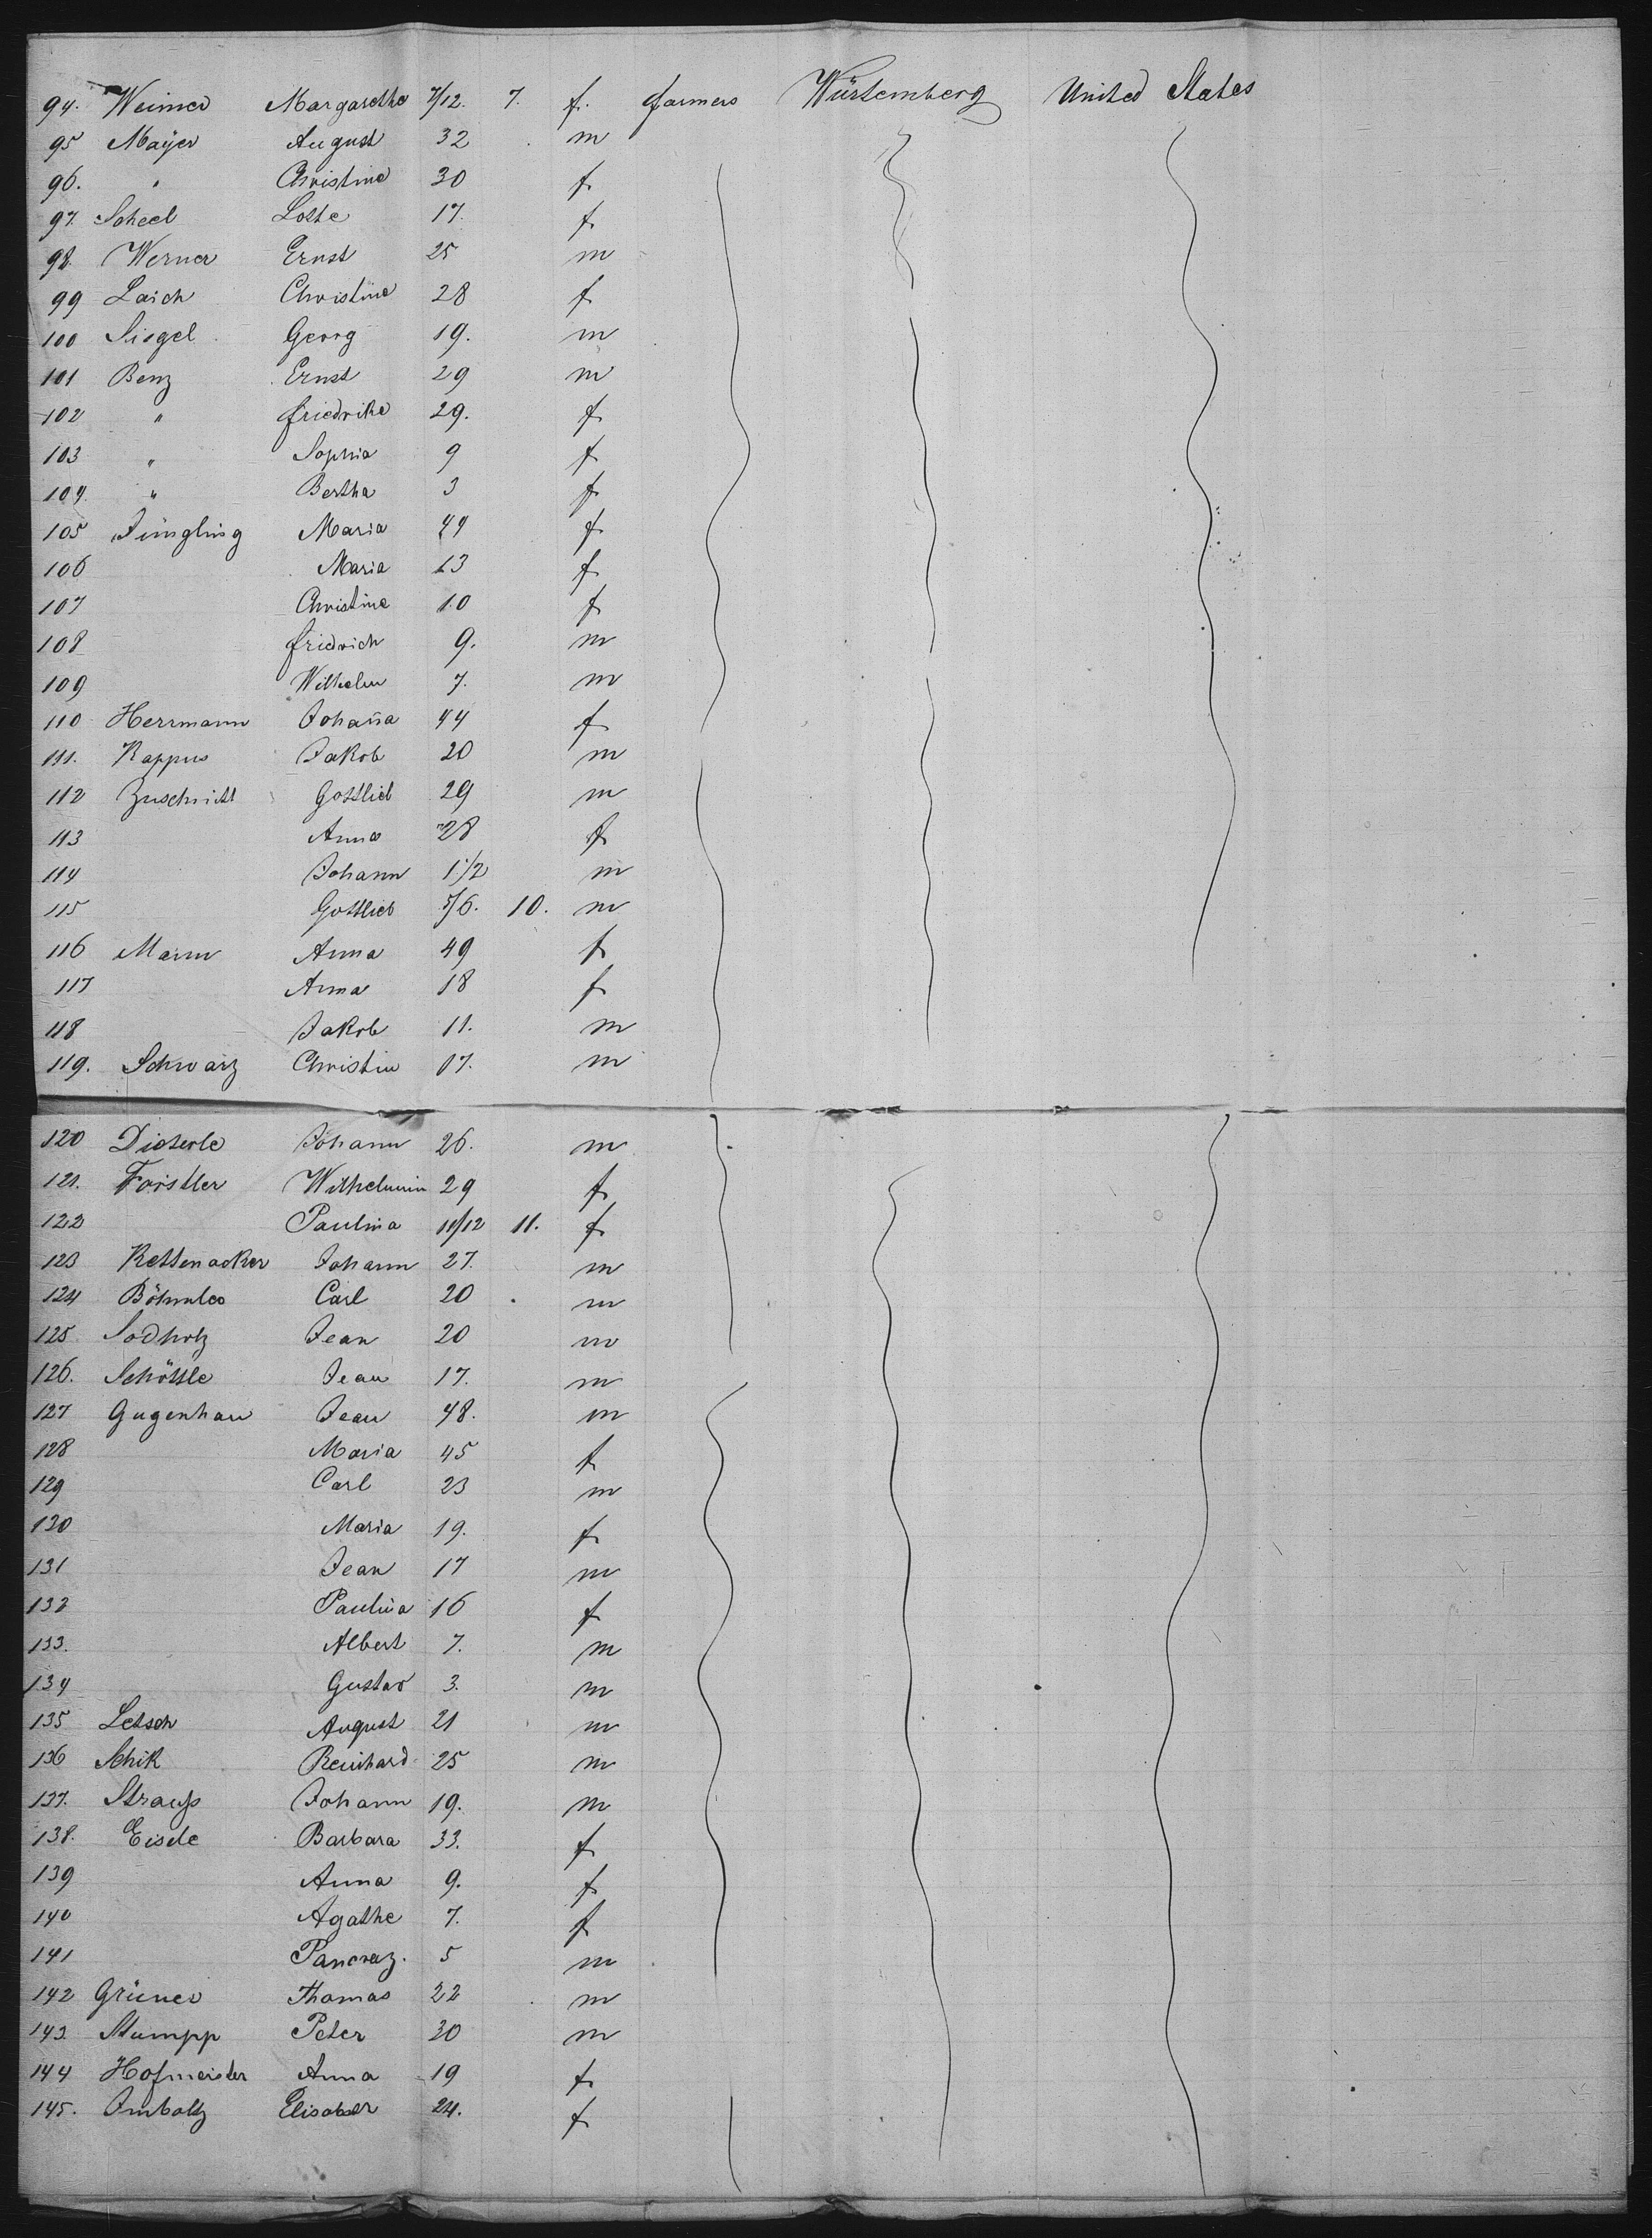 94. Weimer Margarethe 7/12. 7. f. farmers Würtemberg United States
95 Mayer August 32 m
96. " Christine 30 f
97. Scheel Lotte 17. f
98. Werner Ernst 25 m
99 Laich Christine 28 f
100 Siegel Georg 19. m
101 Benz Ernst 29 m
102 " friedrike 29. f
103 " Sophia 9 f
104. " Bertha 3 f
105 Jüngling Maria 44 f
106 Maria 13 f
107 Christine 10 f
108 friedrich 9. m
109 Wilhelm 7. m
110 Herrmann Johaña 44 f
111. Kappus Jakob 20 m
112 Zuschnitt Gottlieb 29 m
113 Anna 28 f
114 Johann 1 1/2 m
115 Gottlieb 5/6. 10. m
116 Mann Anna 49 f
117 Anna 18 f
118 Jakob 11. m
119. Schwarz Christin 17. m
120 Dieterle Johann 26. m
121. Forstler Wilhelmin 29 f
122 Paulina 11/12 11. f
123 Kettenacker Johann 27. m
124 Carl 20 m
125 Jean 20 m
126. Schöttle Jean 17. m
127 Gugenhan Jean 48. m
128 Maria 45 f
129 Carl 23 m
130 Maria 19. f
131 Jean 17 m
132 Paulina 16 f
133. Albert 7. m
134 Gustav 3. m
135 Letsch August 21 m
136 Schik Reinhard 25 m
137. Strauß Johann 19. m
138. Eisele Barbara 33. f
139 Anna 9. f
140 Agathe 7. f
141 Pancraz. 5 m
142 Grüner Thomas 22 m
143 Stumpp Peter 30 m
144 Hofmeister Anna 19 f
145. 24. f